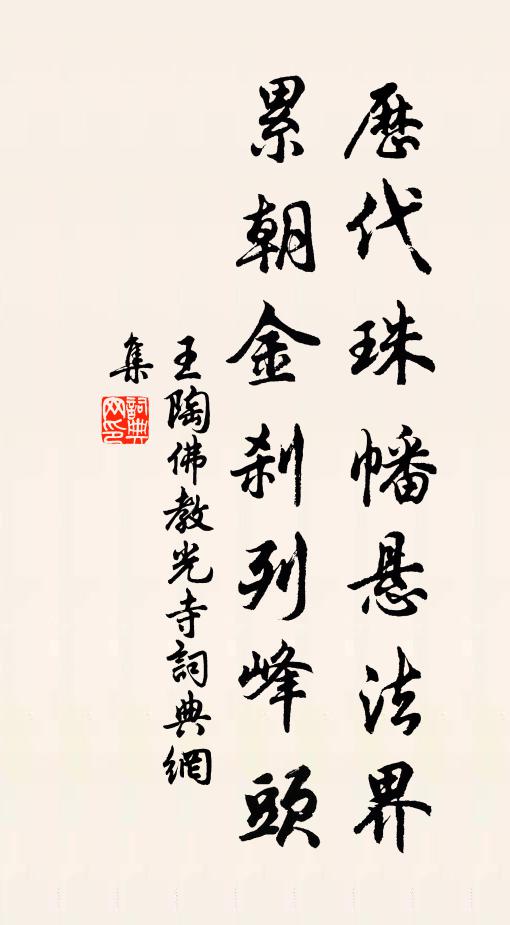 歷代珠幡悬法界
累朝金刹列峰頭
王陶佛教光寺詞典網
集
詞典
网印